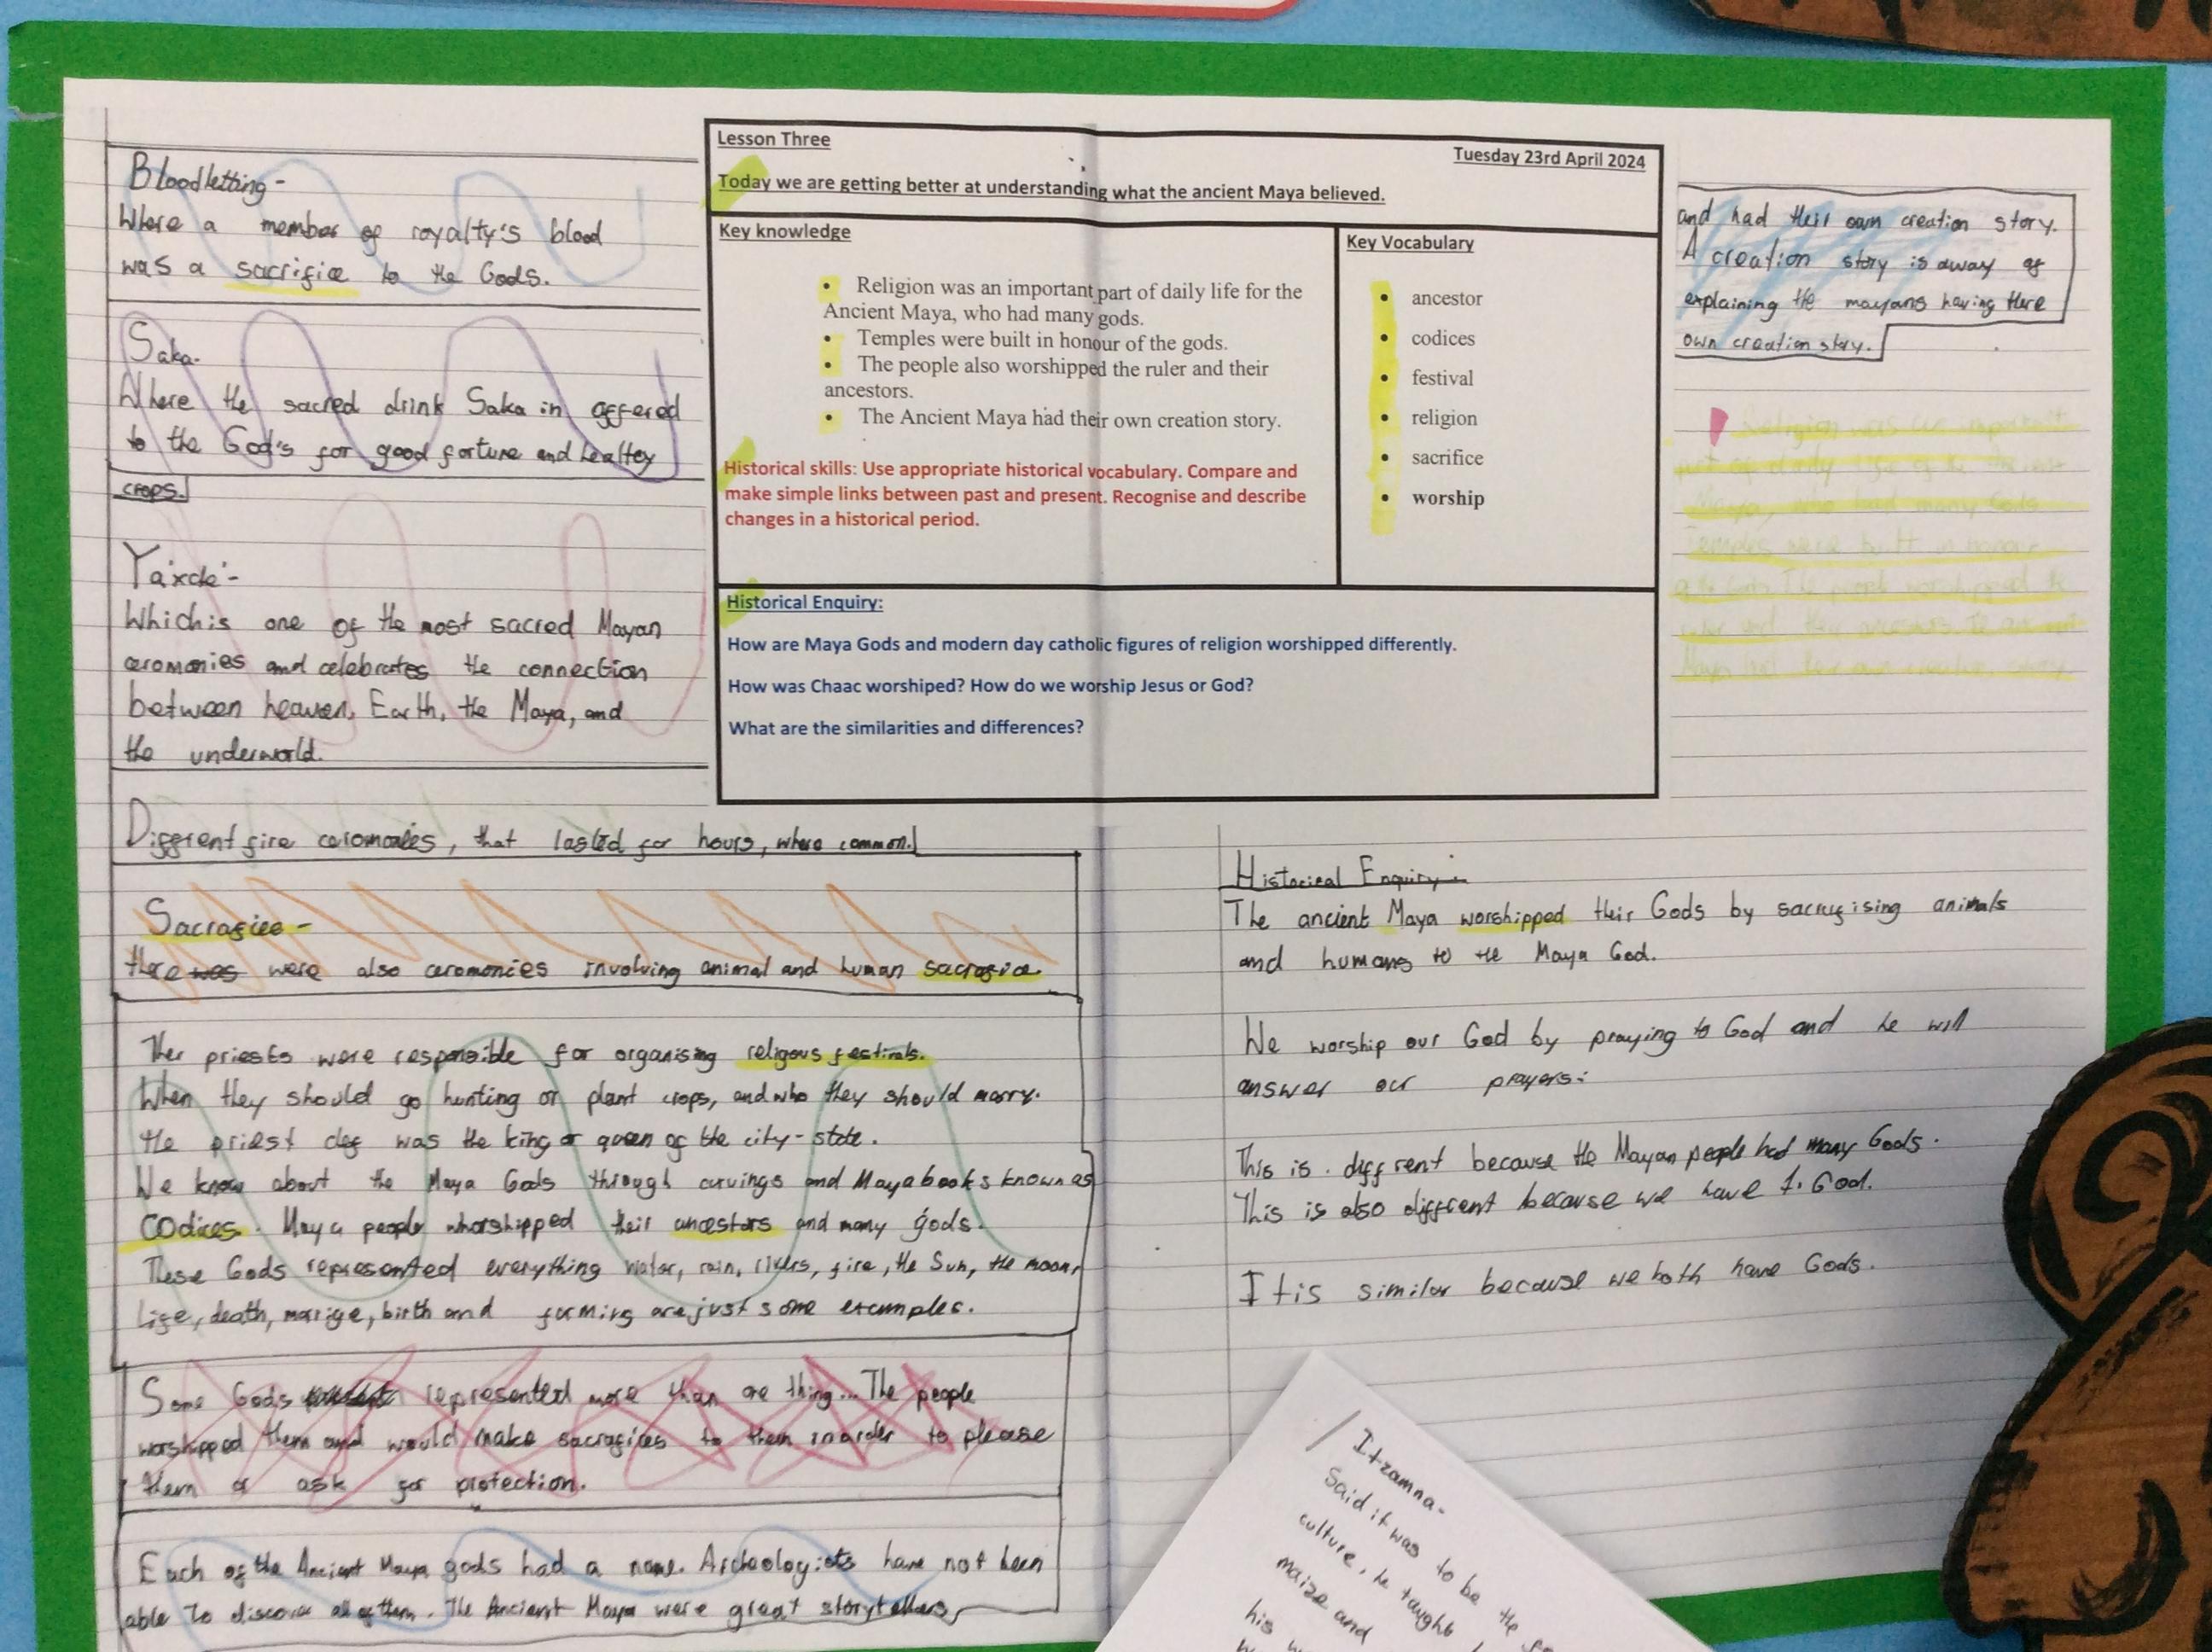 Bloodletting-
Where a member of royalty's blood
was a sacrifice to the Gods.
Saka-
Where the sacred drink Saka in offered
to the God's for good fortune and healtey
crops.
Ya'xche'-
Which is one of the most sacred Mayan
ceromonies and celebrates the connection
between heaven, Earth, the Maya, and
the underworld.
Different fire ceromonies, that lasted for hours, where common.
Sacrafice-
there was were also ceromonies involving animal and human sacrafice.
Ther priests were responsible for organising religous festivals.
When they should go hunting or plant crops, and who they should marry.
the priest was the king or queen of the city-state.
We know about the Maya Gods through carvings and Maya books known as
codices. Maya people whorshipped their ancestors and many gods.
These Gods represented everything water, rain, rivers, fire, the Sun, the moon,
Life, death, marrige, birth and farming are just some examples.
Some Gods represented more than one thing... The people
worshipped them and would make sacrafices to them inorder to please
them or ask for protection.
Each of the Ancient Maya gods had a name. Archeologists have not been
able to discover all of them. The Ancient Maya were great storytellers,
Lesson Three
Tuesday 23rd April 2024
Today we are getting better at understanding what the ancient Maya believed.
Key knowledge
• Religion was an important part of daily life for the
Ancient Maya, who had many gods.
• Temples were built in honour of the gods.
• The people also worshipped the ruler and their
ancestors.
• The Ancient Maya had their own creation story.
Historical skills: Use appropriate historical vocabulary. Compare and
make simple links between past and present. Recognise and describe
changes in a historical period.
Key Vocabulary
• ancestor
• codices
• festival
• religion
• sacrifice
• worship
Historical Enquiry:
How are Maya Gods and modern day catholic figures of religion worshipped differently.
How was Chaac worshiped? How do we worship Jesus or God?
What are the similarities and differences?
and had their own creation story.
A creation story is away of
explaining the mayans having there
own creation story.
Religion was an important
part of daily life of the Ancient
Maya, who had many Gods
Temples were built in honour
of the Gods. The people worshipped the
ruler and their ancestors. The ancient
Maya had their own creation story
Historical Enquiry-
The ancient Maya worshipped their Gods by sacrifising animals
and humans to the Maya God.
We worship our God by praying to God and he will
answer our prayers.
This is different because the Mayan people had many Gods.
This is also different because we have 1 God.
It is similar because we both have Gods.
Itzamna-
Said it was to be the
culture, he taught
maize and
his